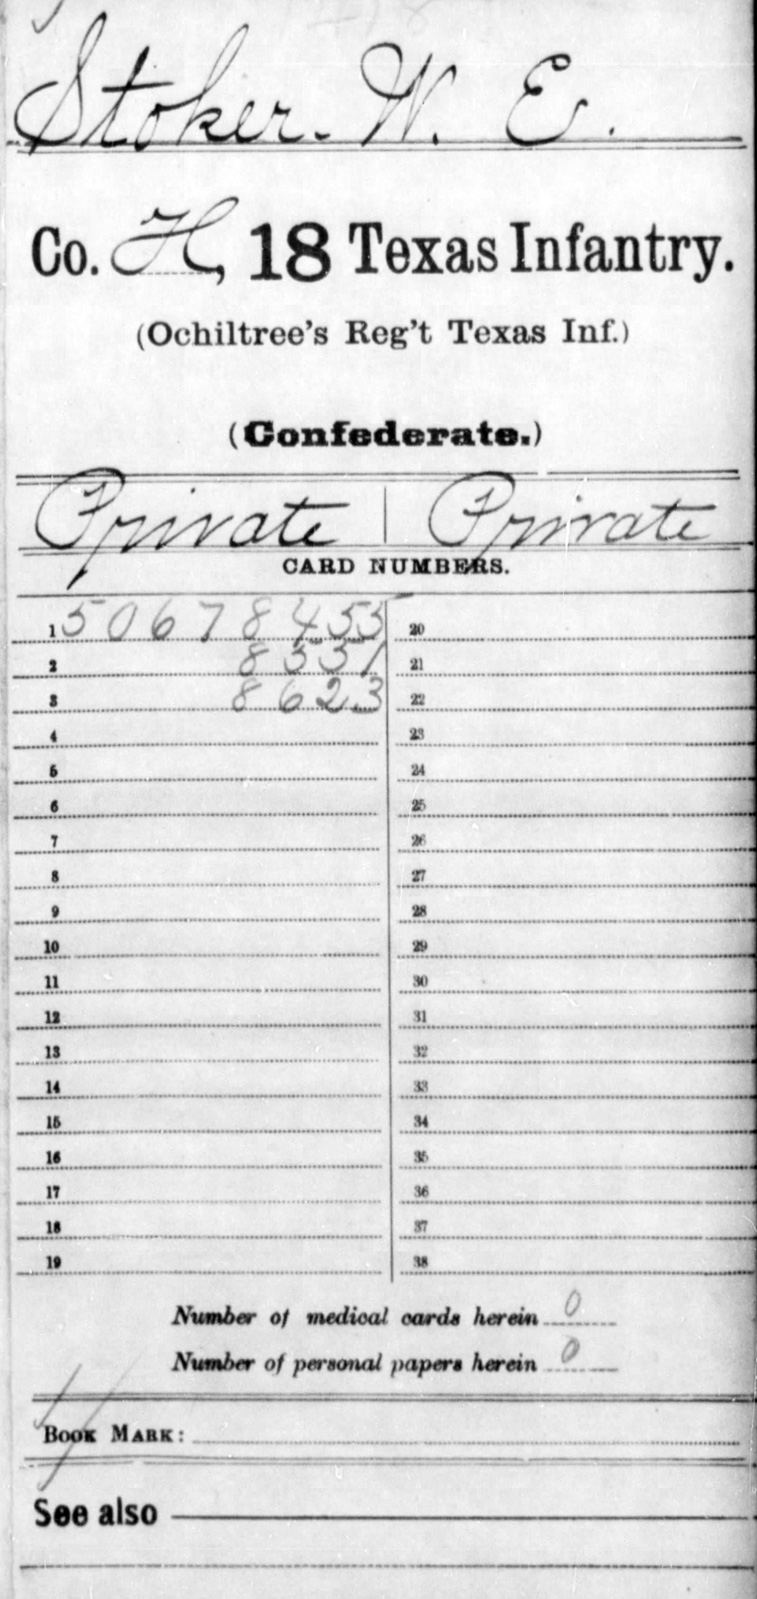 Stoker. W. E.
Co. H, 18 Texas Infantry.
(Ochiltree's Reg't Texas Inf.)
(Confederate.)
Private | Private
CARD NUMBERS.
1 50678455 20
2 8551 21
3 8623 22
4 23
5 24
6 25
7 26
8 27
9 28
10 29
11 30
12 31
13 32
14 33
15 34
16 35
17 36
18 37
19 38
Number of medical cards herein 0
Number of personal papers herein 0
BOOK MARK:
See also